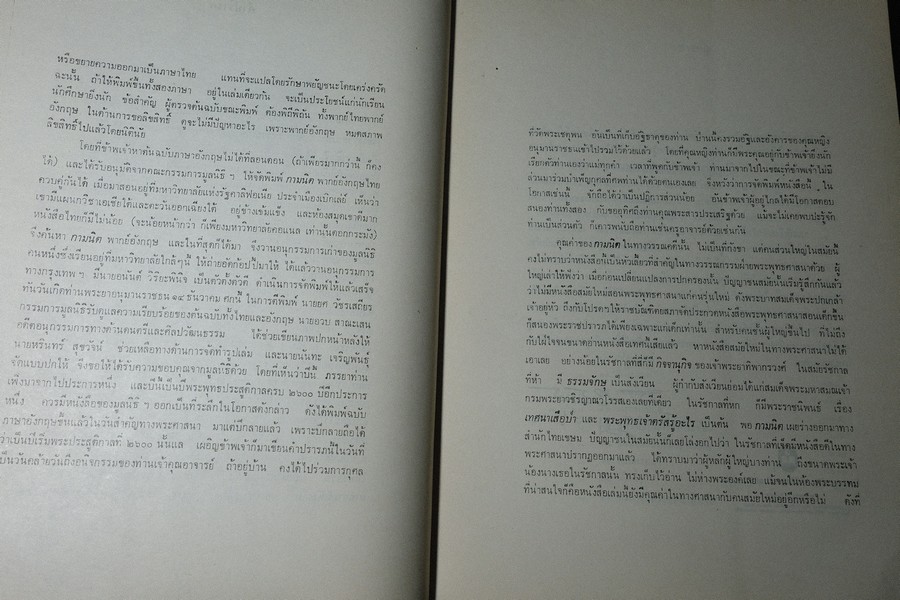 หรือขยายความออกมาเป็นภาษาไทย แทนที่จะแปลโดยรักษาพยัญชนะโดยเคร่งครัด
ฉะนั้น ถ้าให้พิมพ์ขึ้นทั้งสองภาษา อยู่ในเล่มเดียวกัน จะเป็นประโยชน์แก่นักเรียน
นักศึกษายิ่งนัก ข้อสำคัญ ผู้ตรวจต้นฉบับขณะพิมพ์ ต้องพิถีพิถัน ทั้งพากย์ไทยพากย์
อังกฤษ ในด้านการขอลิขสิทธิ์ ดูจะไม่มีปัญหาอะไร เพราะพากย์อังกฤษ หมดสภาพ
ลิขสิทธิ์ไปแล้วโดยนิตินัย
โดยที่ข้าพเจ้าหาต้นฉบับภาษาอังกฤษไม่ได้ที่ลอนดอน (ถ้าเพียรมากกว่านี้ ก็คง
ได้) และได้รับอนุมัติจากคณะกรรมการมูลนิธิ ฯ ให้จัดพิมพ์ กามนิต พากย์อังกฤษไทย
ควบคู่กันได้ เมื่อมาสอนอยู่ที่มหาวิทยาลัยแห่งรัฐคาลิฟอเนีย ประจำเมืองเบิกเลย์ เห็นว่า
เขามีแผนกวิชาเอเซียใต้และตะวันออกเฉียงใต้ อยู่ข้างเข้มแข็ง และห้องสมุดเขาดีมาก
หนังสือไทยก็มีไม่น้อย (จะน้อยหน้ากว่า ก็เพียงมหาวิทยาลัยคอแนล เท่านั้นดอกกระมัง)
จึงค้นหา กามนิต พากย์อังกฤษ และในที่สุดก็ได้มา จึงวานอนุกรรมการเก่าของมูลนิธิ
คนหนึ่งซึ่งเรียนอยู่ที่มหาวิทยาลัยใกล้ๆนี้ ให้ถ่ายอัดก๊อปปี้มาให้ ได้แล้ววานอนุกรรมการ
ทางกรุงเทพ ฯ มีนายอนันต์ วิริยะพินิจ เป็นตัวตั้งตัวตี ดำเนินการจัดพิมพ์ให้แล้วเสร็จ
ทันวันเกิดท่านพระยาอนุมานราชธน ๑๔ ธันวาคม ศกนี้ ในการตีพิมพ์ นายยศ วัชรเสถียร
กรรมการมูลนิธิรับดูแลความเรียบร้อยของต้นฉบับทั้งไทยและอังกฤษ นายอวบ สาณะเสน
อดีตอนุกรรมการทางด้านดนตรีและศิลปวัฒนธรรม ได้ช่วยเขียนภาพปกหน้าหลังให้
นายหรินทร์ สุขวัจน์ ช่วยเหลือทางด้านการจัดทำรูปเล่ม และนายนันทะ เจริญพันธุ์
จัดแบบปกให้ จึงขอให้ได้รับความขอบคุณจากมูลนิธิด้วย โดยที่เห็นว่าปีนี้ ภรรยาท่าน
เพิ่งมาจากไปประการหนึ่ง และปีนี้เป็นปีพระพุทธประสูติกาลครบ ๒๖๐๐ ปีอีกประการ
หนึ่ง ควรมีหนังสือของมูลนิธิ ฯ ออกเป็นที่ระลึกในโอกาสดังกล่าว ดังได้พิมพ์ฉบับ
ภาษาอังกฤษขึ้นแล้วในวันสำคัญทางพระศาสนา มาแต่ปีกลายแล้ว เพราะปีกลายถือได้
ว่าเป็นปีเริ่มพระประสูติกาลที่ ๒๖๐๐ นั้นแล เผอิญข้าพเจ้าก็มาเขียนคำปรารภนี้ในวันที่
เป็นวันคล้ายวันถึงอนิจกรรมของท่านเจ้าคุณอาจารย์ ถ้าอยู่บ้าน คงได้ไปร่วมการกุศล
ที่วัดพระเชตุพน อันเป็นที่เก็บอัฐิธาตุของท่าน บ่านนี้คงรวมอัฐิและอังคารของคุณหญิง
อนุมานราชธนเข้าไปรวมไว้ด้วยแล้ว โดยที่คุณหญิงท่านก็มีพระคุณอยู่กับข้าพเจ้ายิ่งนัก
เรียกตัวท่านเองว่าแม่ทุกคำ เวลาที่พูดกับข้าพเจ้า ท่านมาจากไปในขณะที่ข้าพเจ้าไม่มี
ส่วนมาร่วมบำเพ็ญกุศลที่ศพท่านได้ด้วยตนเองเลย จึงหวังว่าการจัดพิมพ์หนังสือนี้ ใน
โอกาสเช่นนี้ จักถือได้ว่าเป็นปฏิการส่วนน้อย อันข้าพเจ้าผู้อยู่ไกลได้มีโอกาสตอบ
สนองท่านทั้งสอง กับขออุทิศถึงท่านคุณพระสารประเสริฐด้วย แม้จะไม่เคยพบปะรู้จัก
ท่านเป็นส่วนตัว ก็เคารพนับถือท่านเช่นครูอาจารย์ด้วยเช่นกัน
คุณค่าของกามนิตในทางวรรณคดีนั้น ไม่เป็นที่กังขา แต่คนส่วนใหญ่ในสมัยนี้
คงไม่ทราบว่าหนังสือนี้เป็นหัวเลี้ยวที่สำคัญในทางวรรณกรรมฝ่ายพระพุทธศาสนาด้วย ผู้
ใหญ่เล่าให้ฟังว่า เมื่อก่อนเปลี่ยนแปลงการปกครองนั้น ปัญญาชนสมัยนั้นเริ่มรู้สึกกันแล้ว
ว่าไม่มีหนังสือสมัยใหม่สอนพระพุทธศาสนาแก่คนรุ่นใหม่ ดังพระบาทสมเด็จพระปกเกล้า
เจ้าอยู่หัว ถึงกับโปรดฯให้ราชบัณฑิตยสภาจัดประกวดหนังสือสอนพระพุทธศาสนาแต่เด็กขึ้น
ก็สนองพระราชปรารภได้เพียงเฉพาะแก่เด็กเท่านั้น สำหรับคนชั้นผู้ใหญ่ขึ้นไป ที่ไม่ถึง
กับใฝ่ใจจนขนาดอ่านหนังสือเทศน์เสียแล้ว หาหนังสือสมัยใหม่ในทางพระศาสนาไม่ได้
เอาเลย อย่างน้อยในรัชกาลที่สี่ก็มี กิจจานุกิจ ของเจ้าพระยาทิพากรวงศ์ ในสมัยรัชกาล
ที่ห้า มี ธรรมจักษุ เป็นส่งเวียน ผู้กำกับส่งเวียนย่อมได้แก่สมเด็จพระมหาสมณเจ้า
กรมพระยาวชิรญาณวโรรสเองเลยทีเดียว ในรัชกาลที่หก ก็มีพระราชนิพนธ์ เรื่อง
เทศนาเสือป่า และ พระพุทธเจ้าตรัสรู้อะไร เป็นต้น พอ กามนิต เผยร่างออกมาทาง
สำนักไทยเขษม ปัญญาชนในสมัยนั้นก็เลยโล่งอกไปว่า ในรัชกาลที่เจ็ดมีหนังสือดีในทาง
พระศาสนาปรากฏออกมาแล้ว ได้ทราบมาว่าผู้หลักผู้ใหญ่บางท่าน ถึงขนาดพระเจ้า
น้องนางเธอในรัชกาลนั้น ทรงเก็บไว้อ่าน ไม่ห่างพระองค์เลย แม้จนในห้องพระบรรทม
ที่น่าสนใจก็คือหนังสือเล่มนี้ยังมีคุณค่าในทางศาสนากับคนสมัยใหม่อยู่อีกหรือไม่ ดังที่